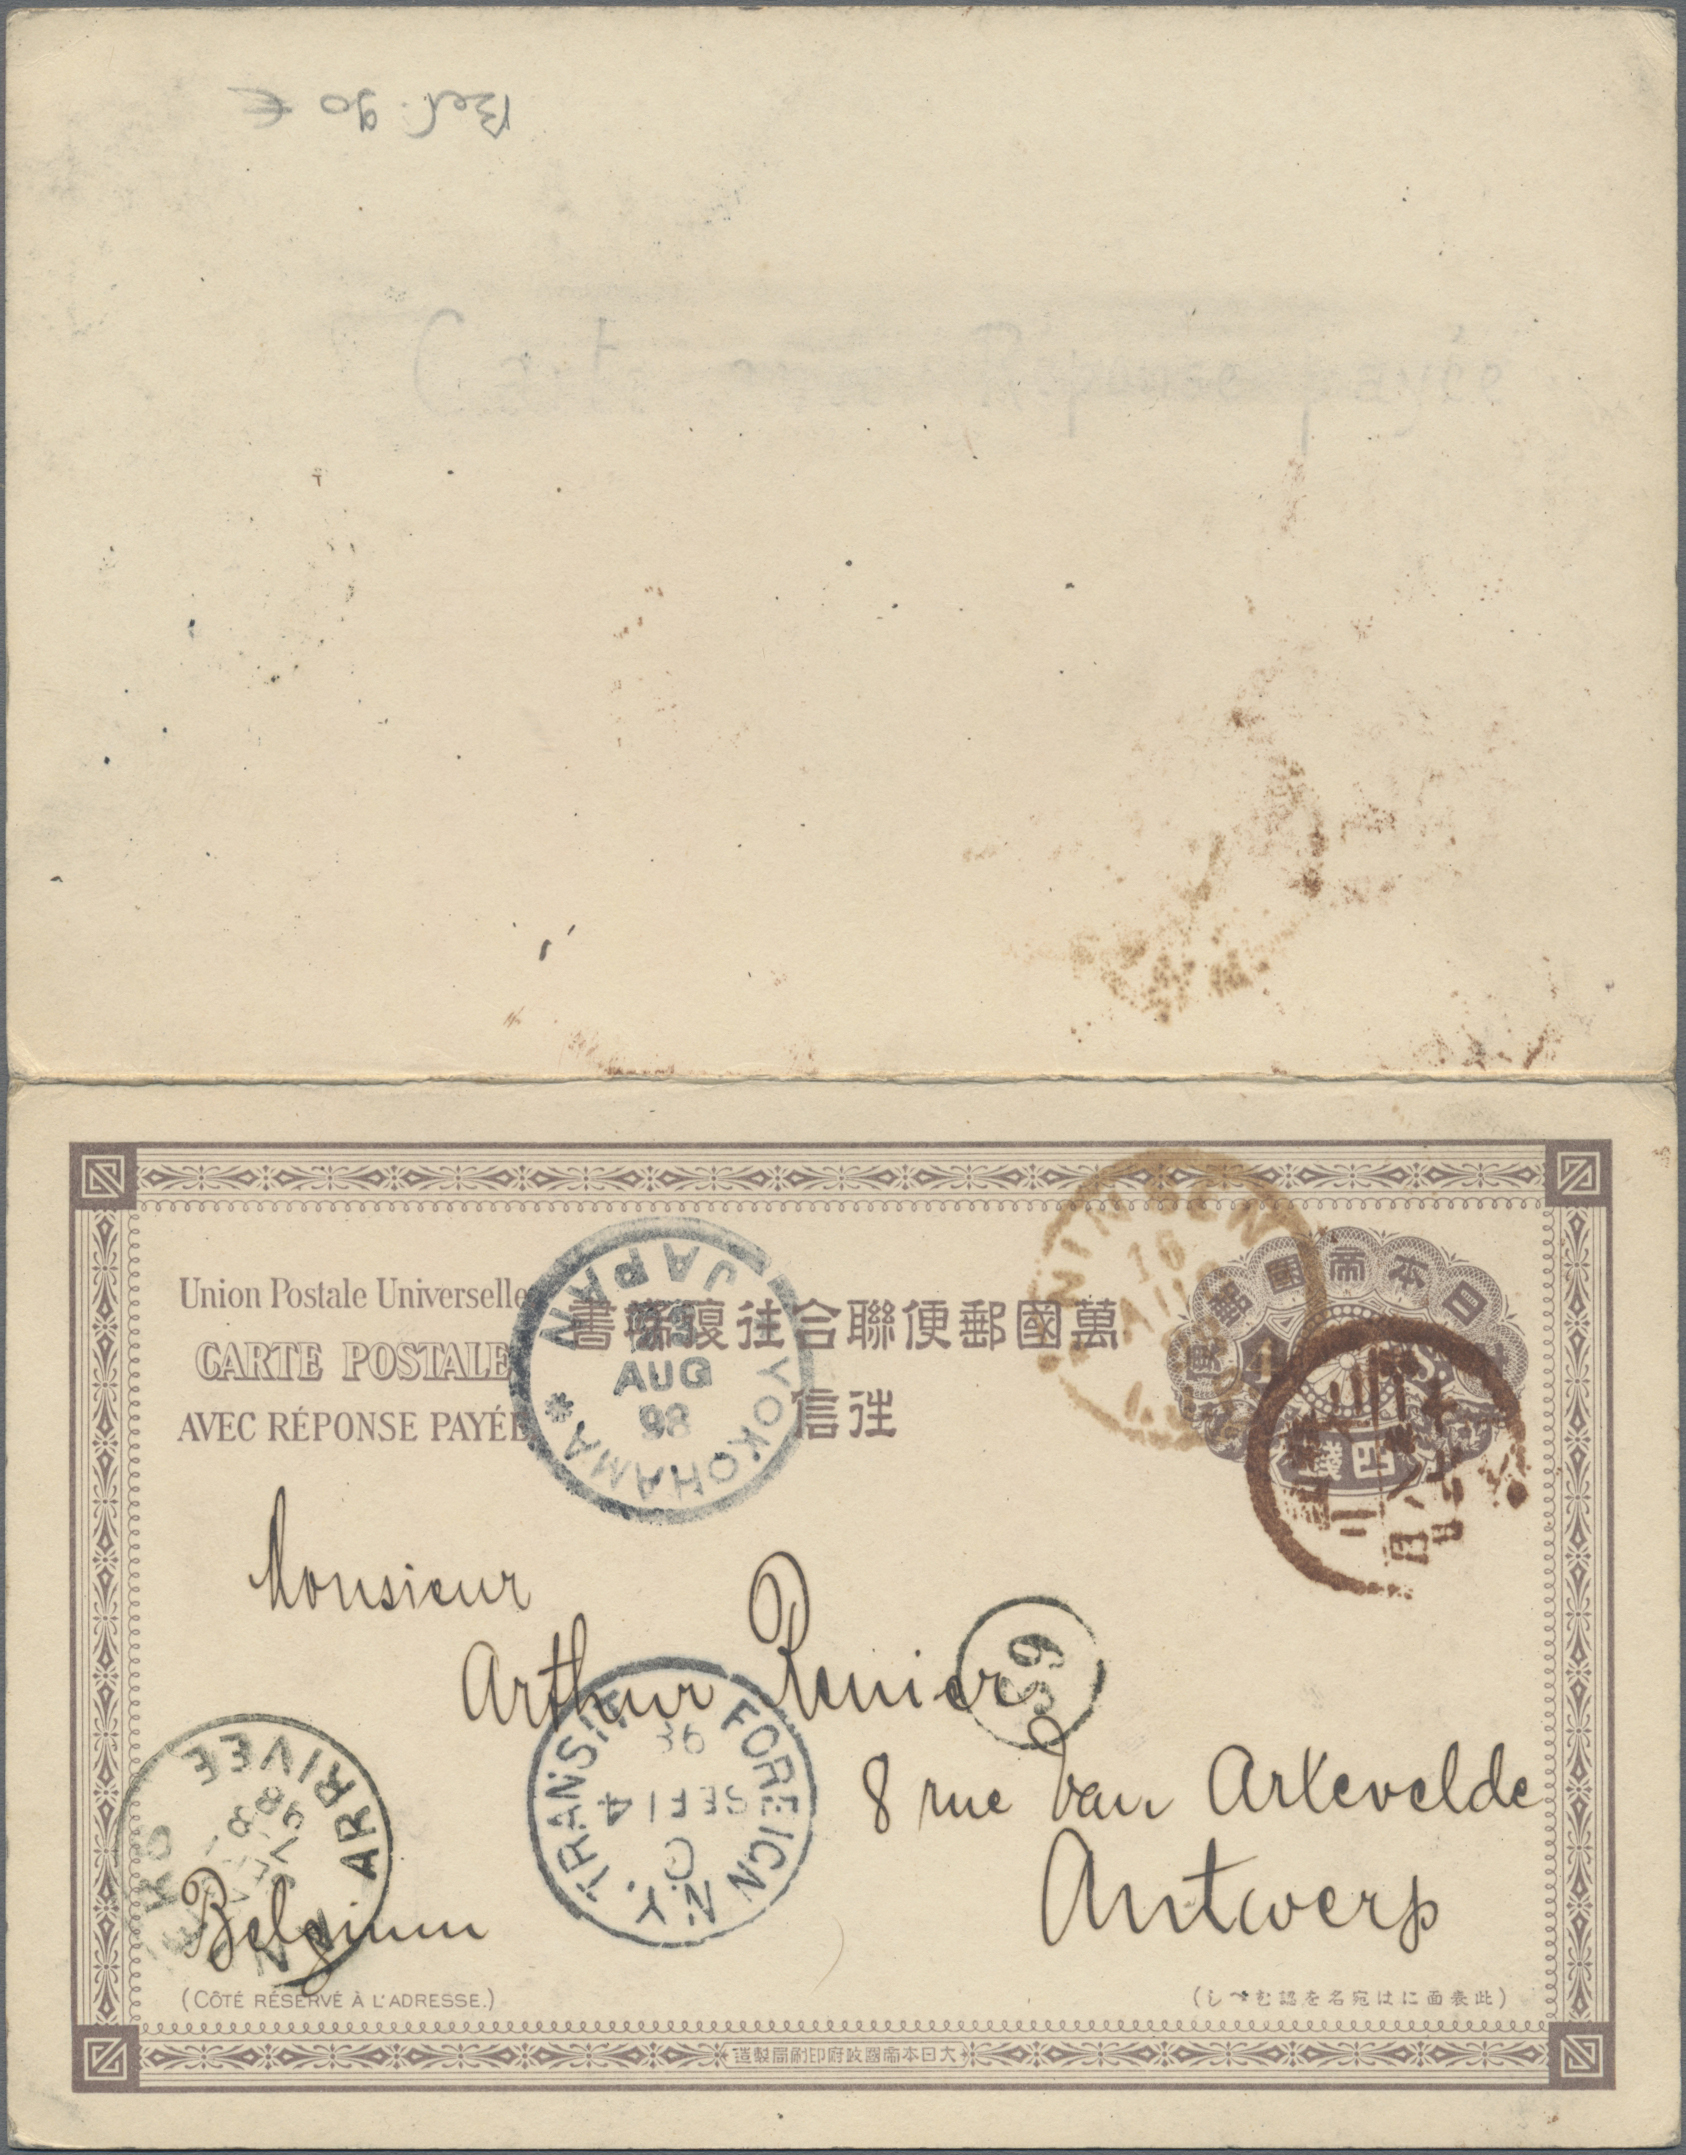 Bef. 90 €
Union Postale Universelle
CARTE POSTALE
AVEC RÉPONSE PAYÉE
書葉復往合聯便郵國萬
信往
日本帝國郵
四錢
YOKOHAMA JAPAN
AUG
98
NINSEN
16
Monsieur
Arthur Renier
59
8 rue Van Artevelde
Antwerp
Belgium
N.Y. FOREIGN TRANSIT
SEP 14
C
ARRIVEE
98
(CÔTÉ RÉSERVÉ À L'ADRESSE.)
(しべむ認を名宛はに面表此)
造製局刷印府政國帝本日大